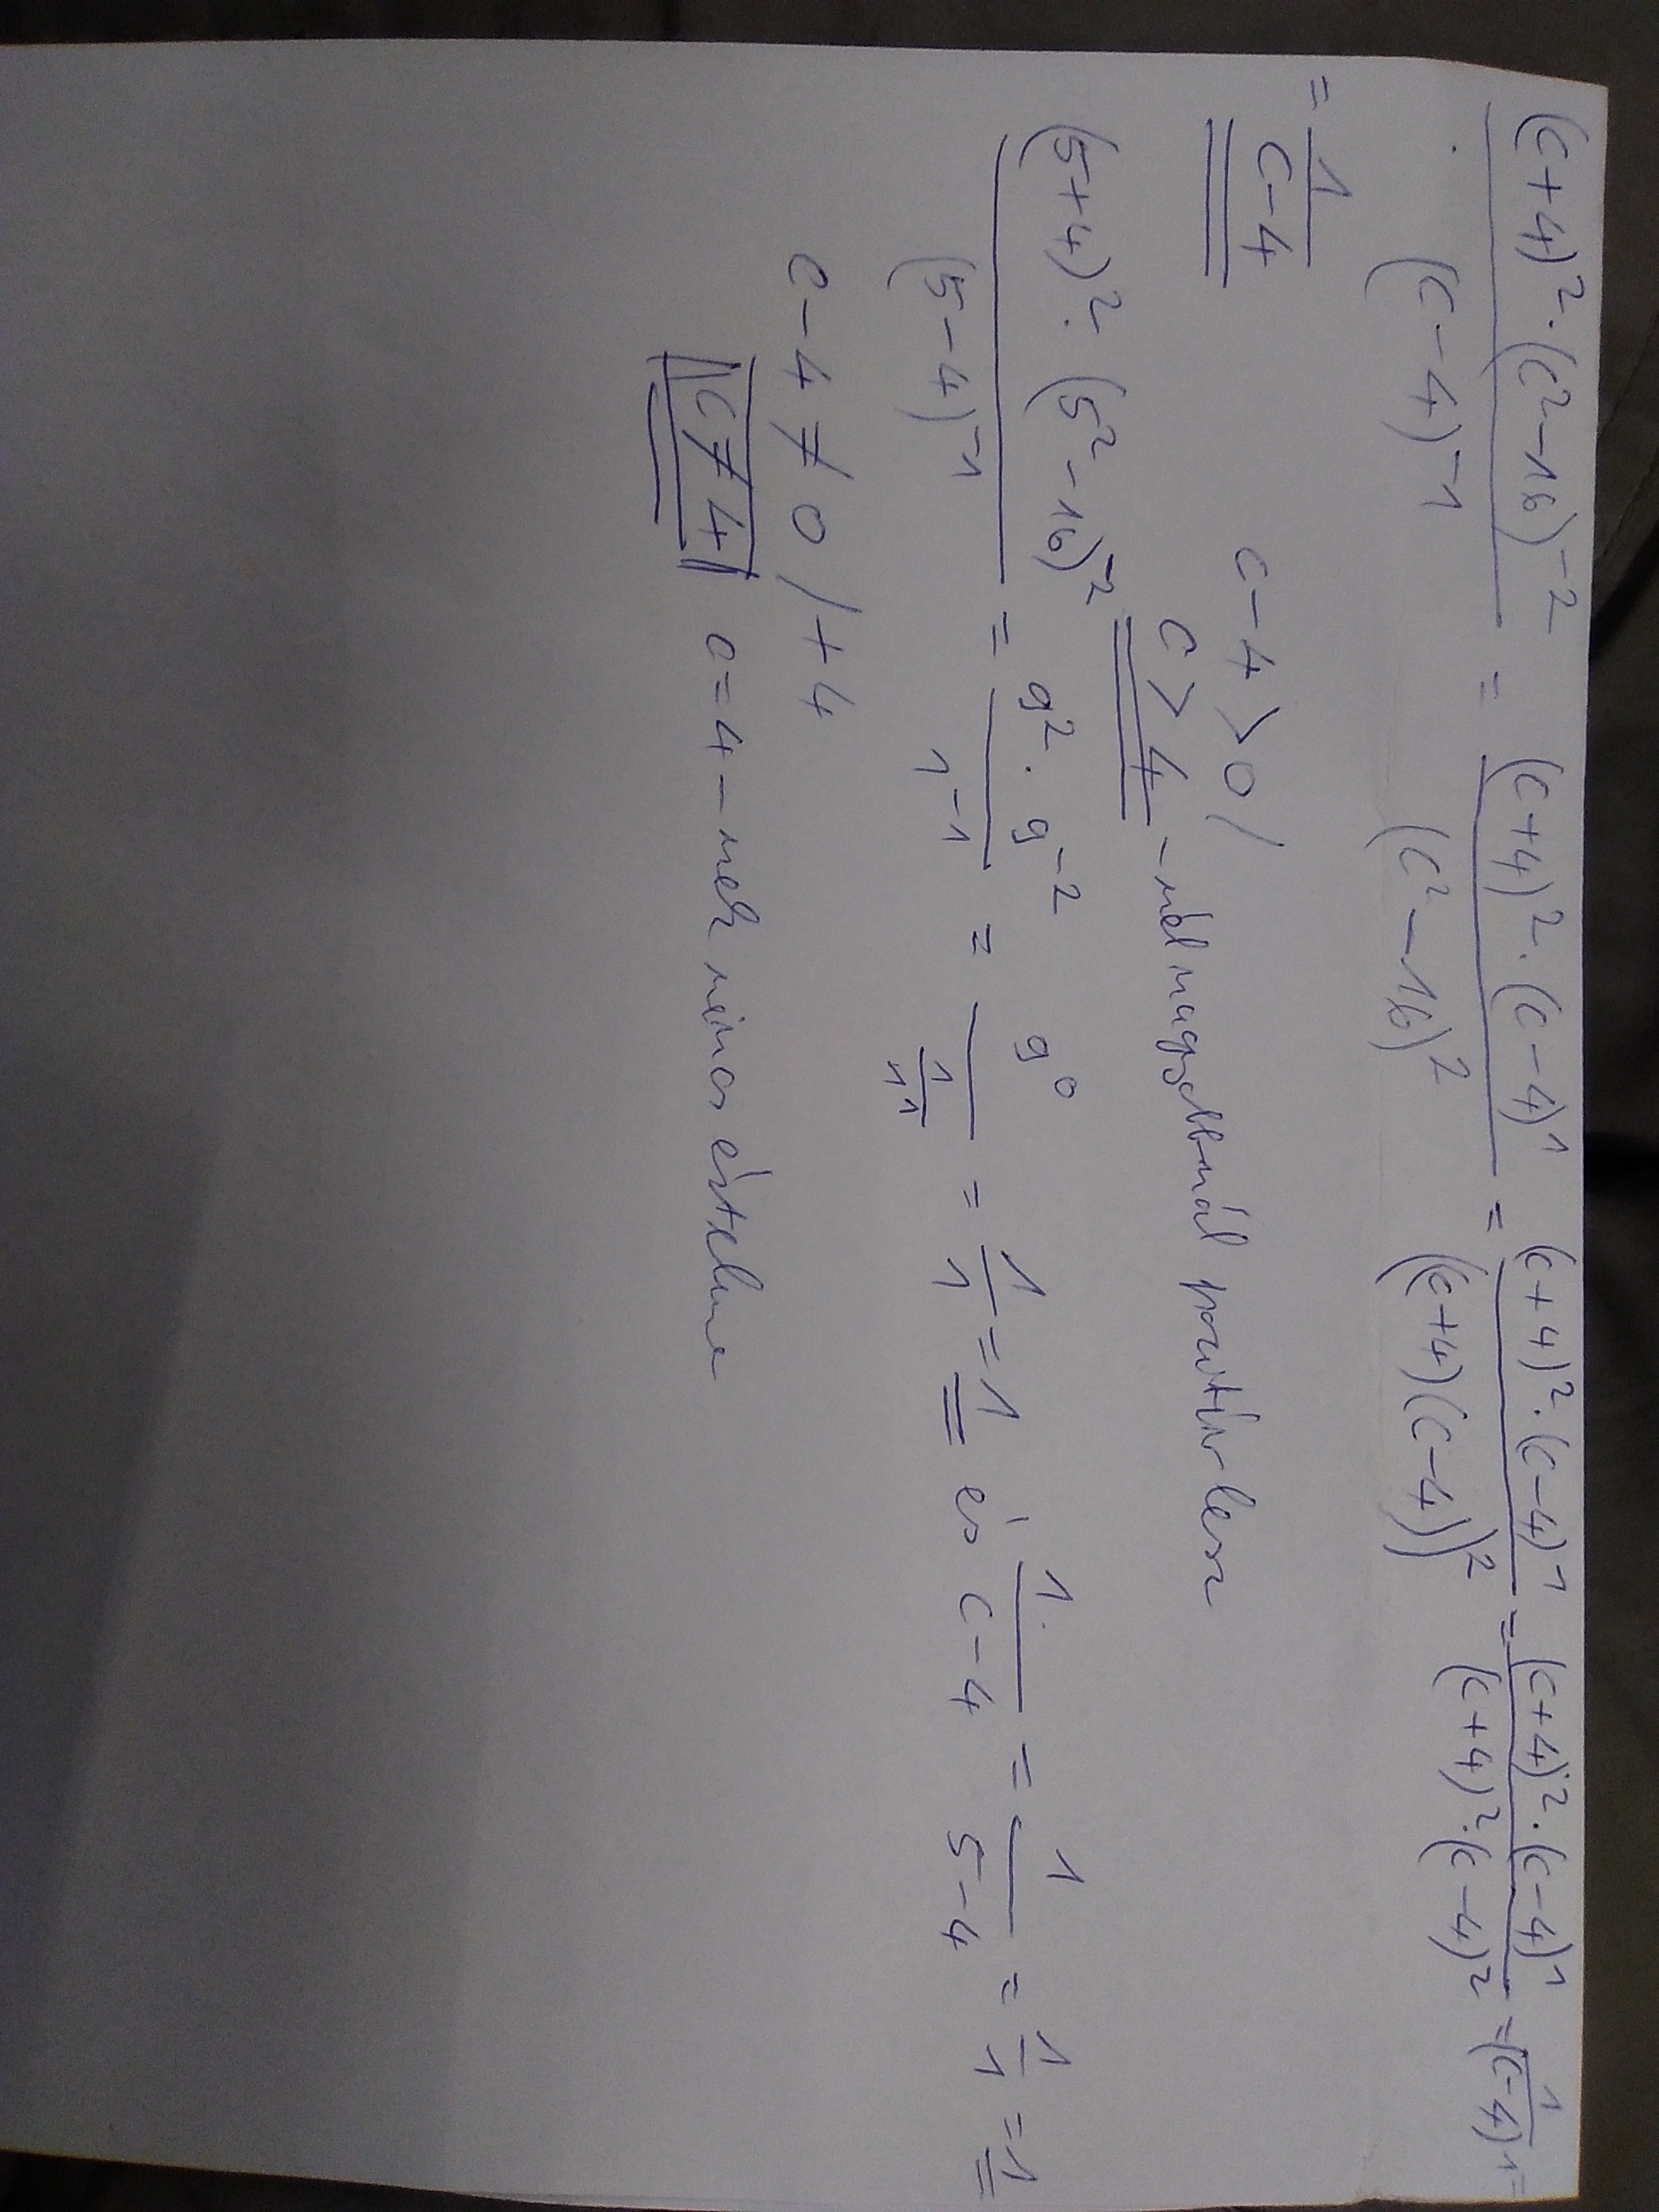 (c+4)²·(c²-16)⁻² / (c-4)⁻¹ = (c+4)²·(c-4)¹ / (c²-16)² = (c+4)²·(c-4)¹ / ((c+4)(c-4))² = (c+4)²·(c-4)¹ / (c+4)²·(c-4)² = 1 / (c-4)¹ =
= 1 / c-4
c-4>0/
c>4 -nél nagyobbnál pozitív lesz
(5+4)²·(5²-16)⁻² / (5-4)⁻¹ = 9²·9⁻² / 1⁻¹ = 9⁰ / 1/1¹ = 1/1 = 1 és 1 / c-4 = 1 / 5-4 = 1/1 = 1
c-4≠0/+4
c≠4 c=4-nek nincs értelme